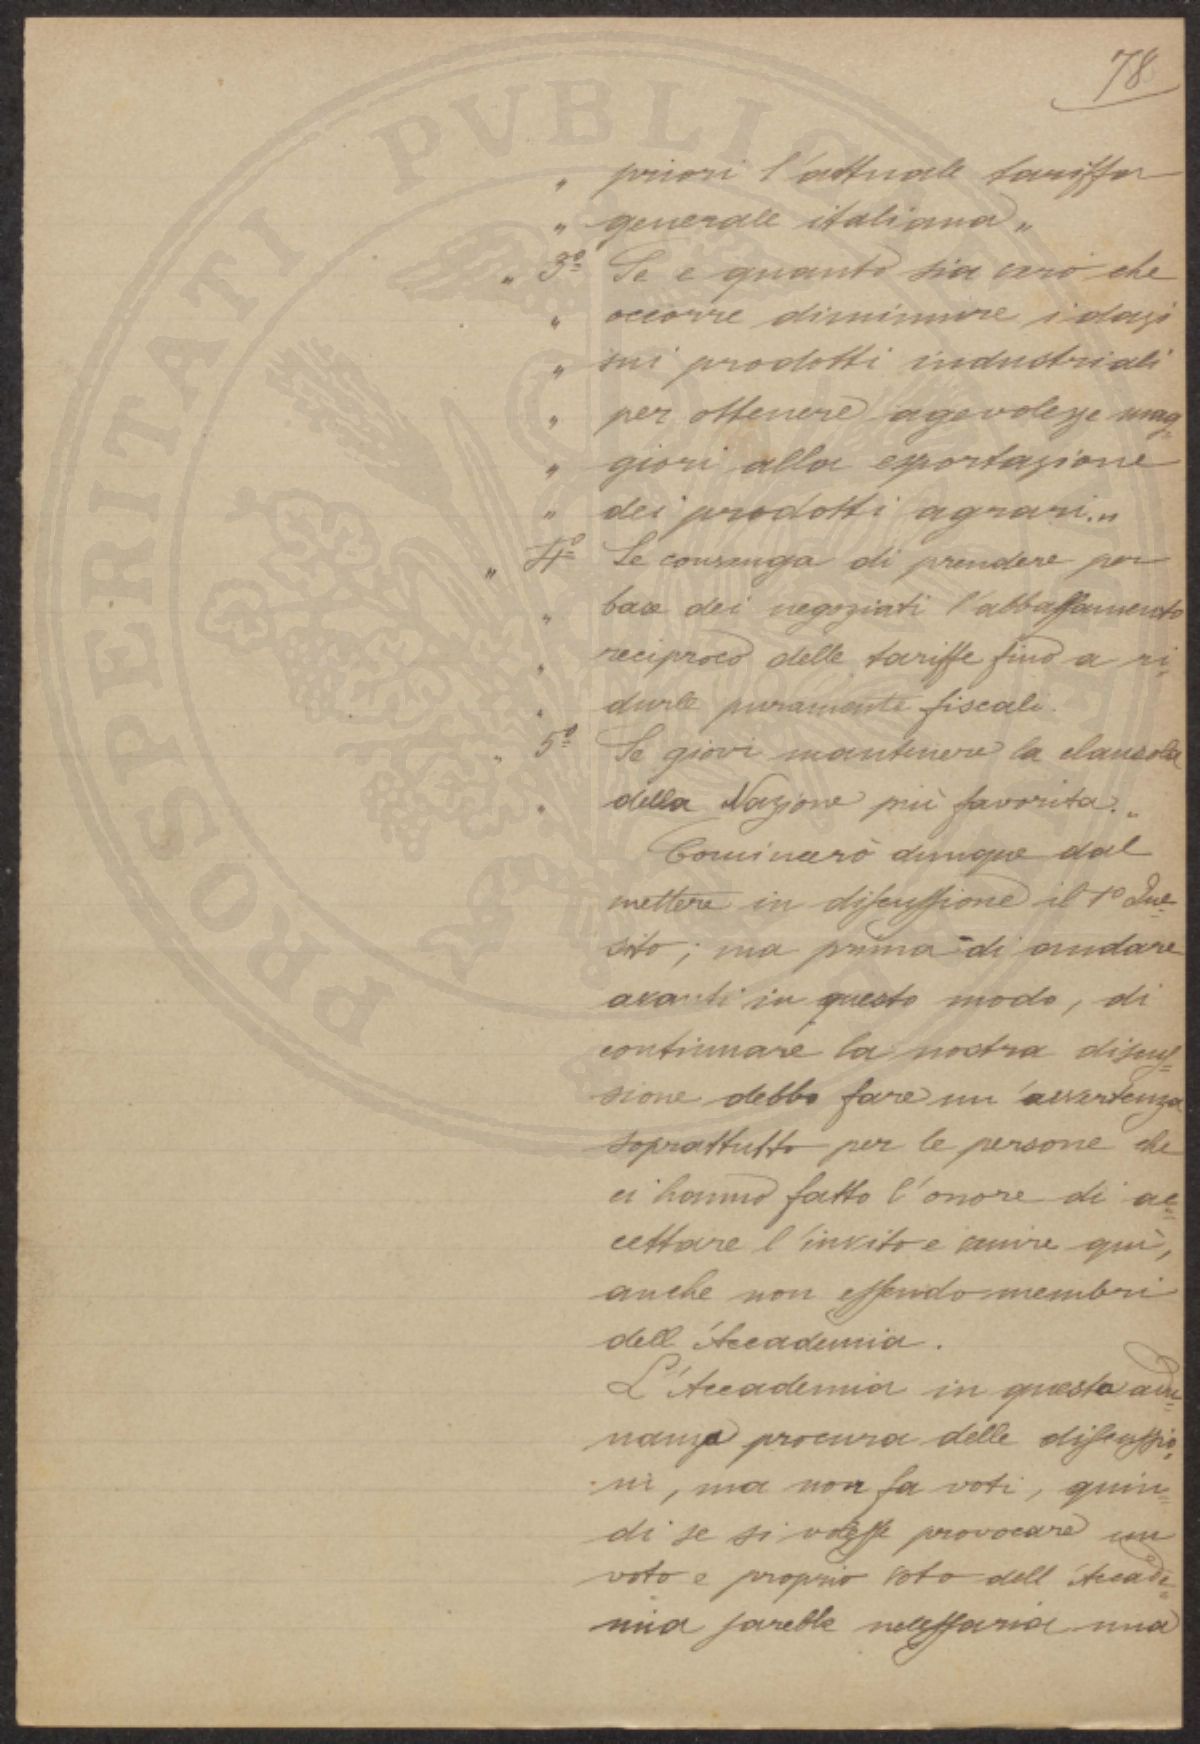 78
" priori l'attuale tariffa
" generale italiana "
" 3º Se e quanto sia vero che
" occorre diminuire i dazi
" sui prodotti industriali
" per ottenere agevolezze mag-
" giori alla esportazione
" dei prodotti agrari. "
" 4º Se convenga di prendere per
" base dei negoziati l'abbassamento
" reciproco delle tariffe fino a ri-
" durle puramente fiscali.
" 5º Se giovi mantenere la clausola
" della Nazione più favorita. "
Comincerò dunque dal
mettere in discussione il 1º Que-
sito; ma prima di andare
avanti in questo modo, di
continuare la nostra discus-
sione debbo fare un'avvertenza
soprattutto per le persone che
ci hanno fatto l'onore di ac-
cettare l'invito e venire quì,
anche non essendo membri
dell'Accademia.
L'Accademia in questa adu-
nanza procura delle discussio-
ni, ma non fa voti, quin-
di se si volesse provocare un
voto e proprio voto dell'Accade-
mia sarebbe necessaria una
PROSPERITATI PVBLIC